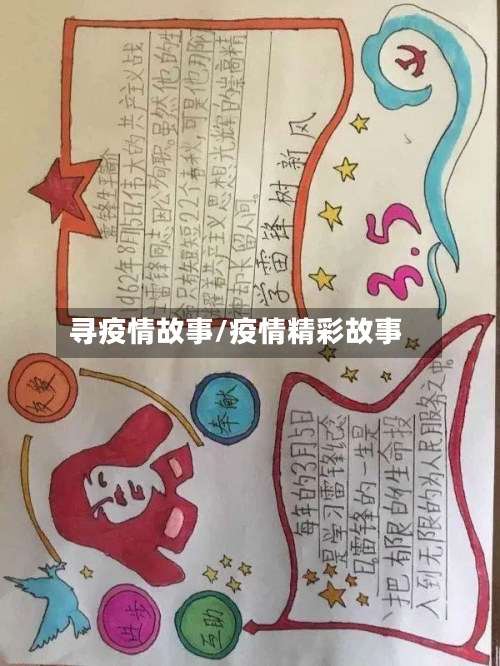 雷锋生平简介
1962年8月15日伟大的共产主义战
士雷锋同志因公殉职。虽然他的生
命只有短短22个春秋,可是他那闪
耀着共产主义思想光辉的崇高精
神却永留人间。
学雷锋树新风
3.5
寻疫情故事/疫情精彩故事
友爱
奉献
进步
互助
每年的3月5日
是学习雷锋纪念
日。雷锋的一生是
把有限的生命投
入到无限的为人民服务之中。